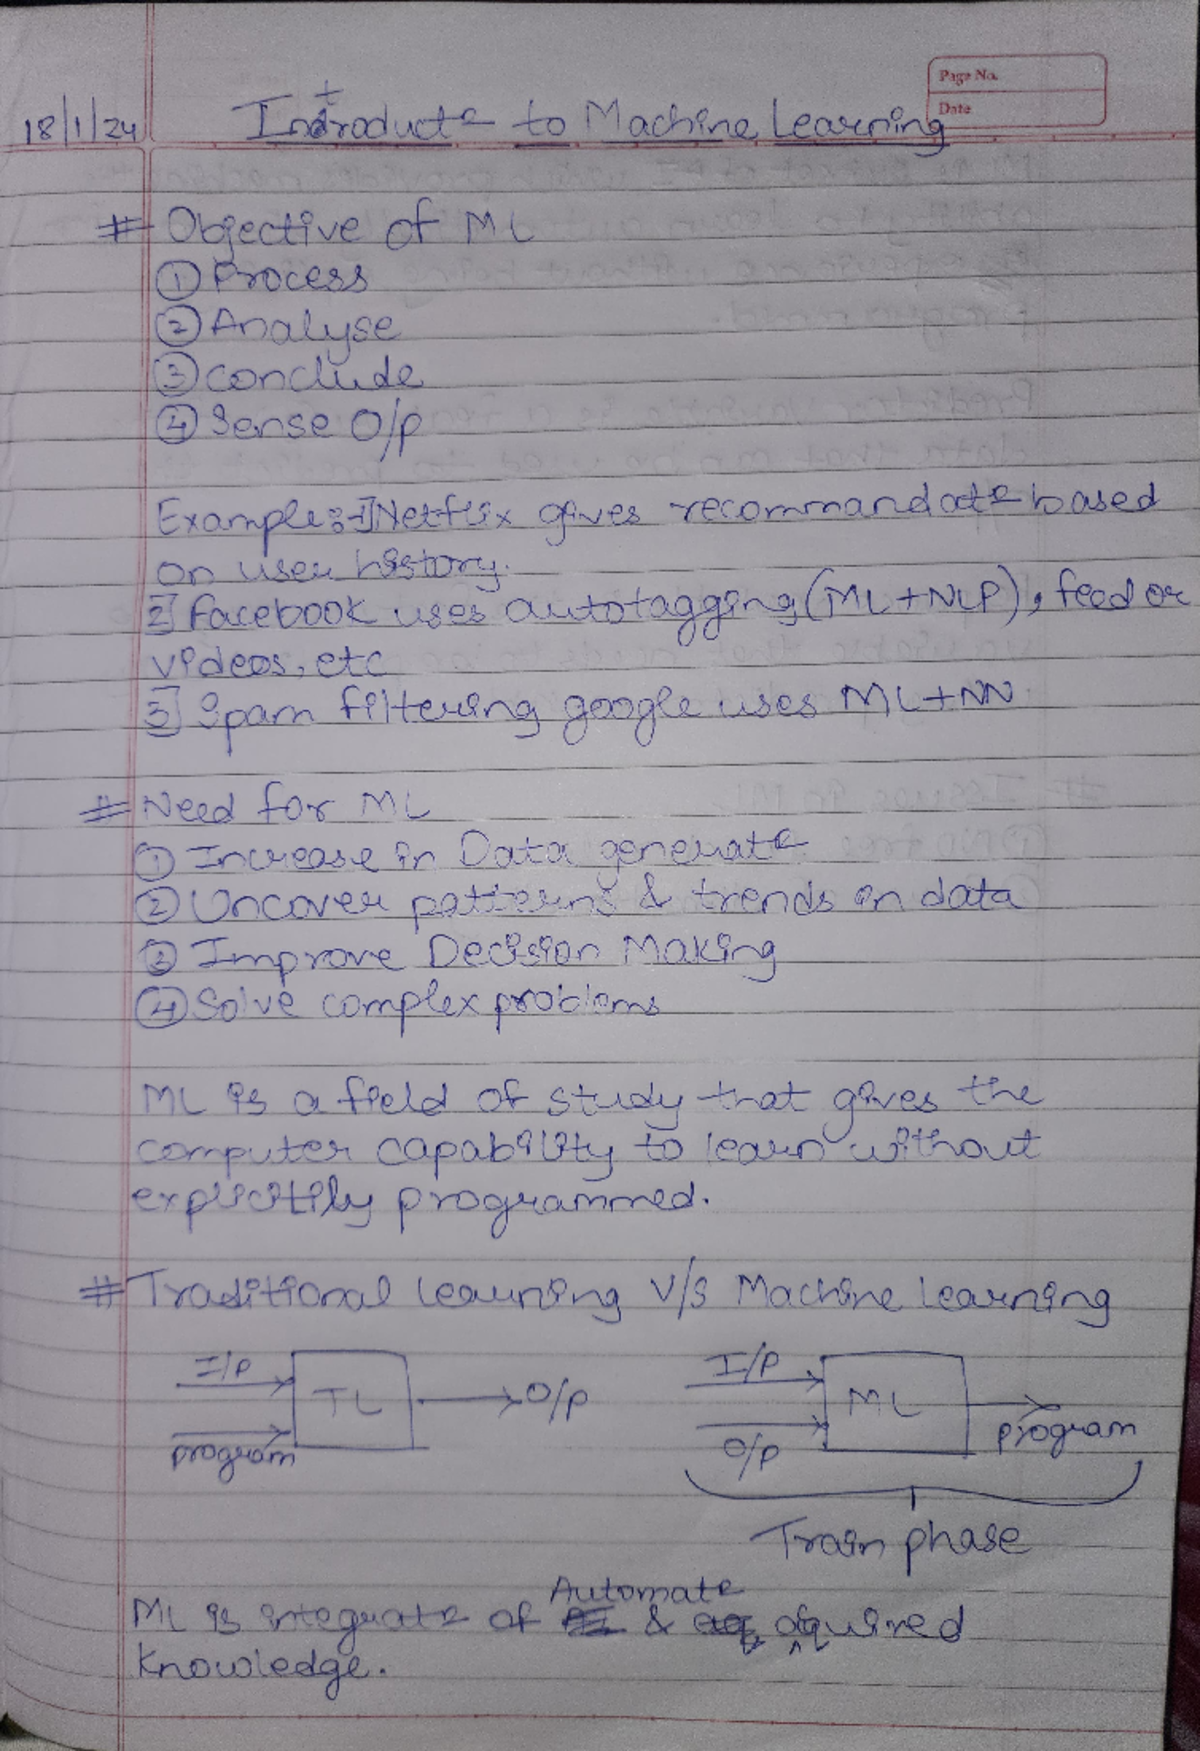 Page No.
Date
18/1/24 Introductn to Machine Learning
# Objective of ML
① Process
② Analyse
③ conclude
④ Sense O/p
Example:-1] Netflix gives recommandatn based
on user history.
2] Facebook uses autotagging (ML+NLP), feed or
videos, etc
3] Spam filtering google uses ML+NN
# Need for ML
① Increase in Data generatn
② Uncover patterns & trends in data
③ Improve Decision Making
④ Solve complex problems
ML is a field of study that gives the
computer capability to learn without
explicitily programmed.
# Traditional learning V/s Machine learning
I/P TL O/p
program
I/P ML program
O/p
Train phase
ML is integratn of Automatn & aquired
knowledge.